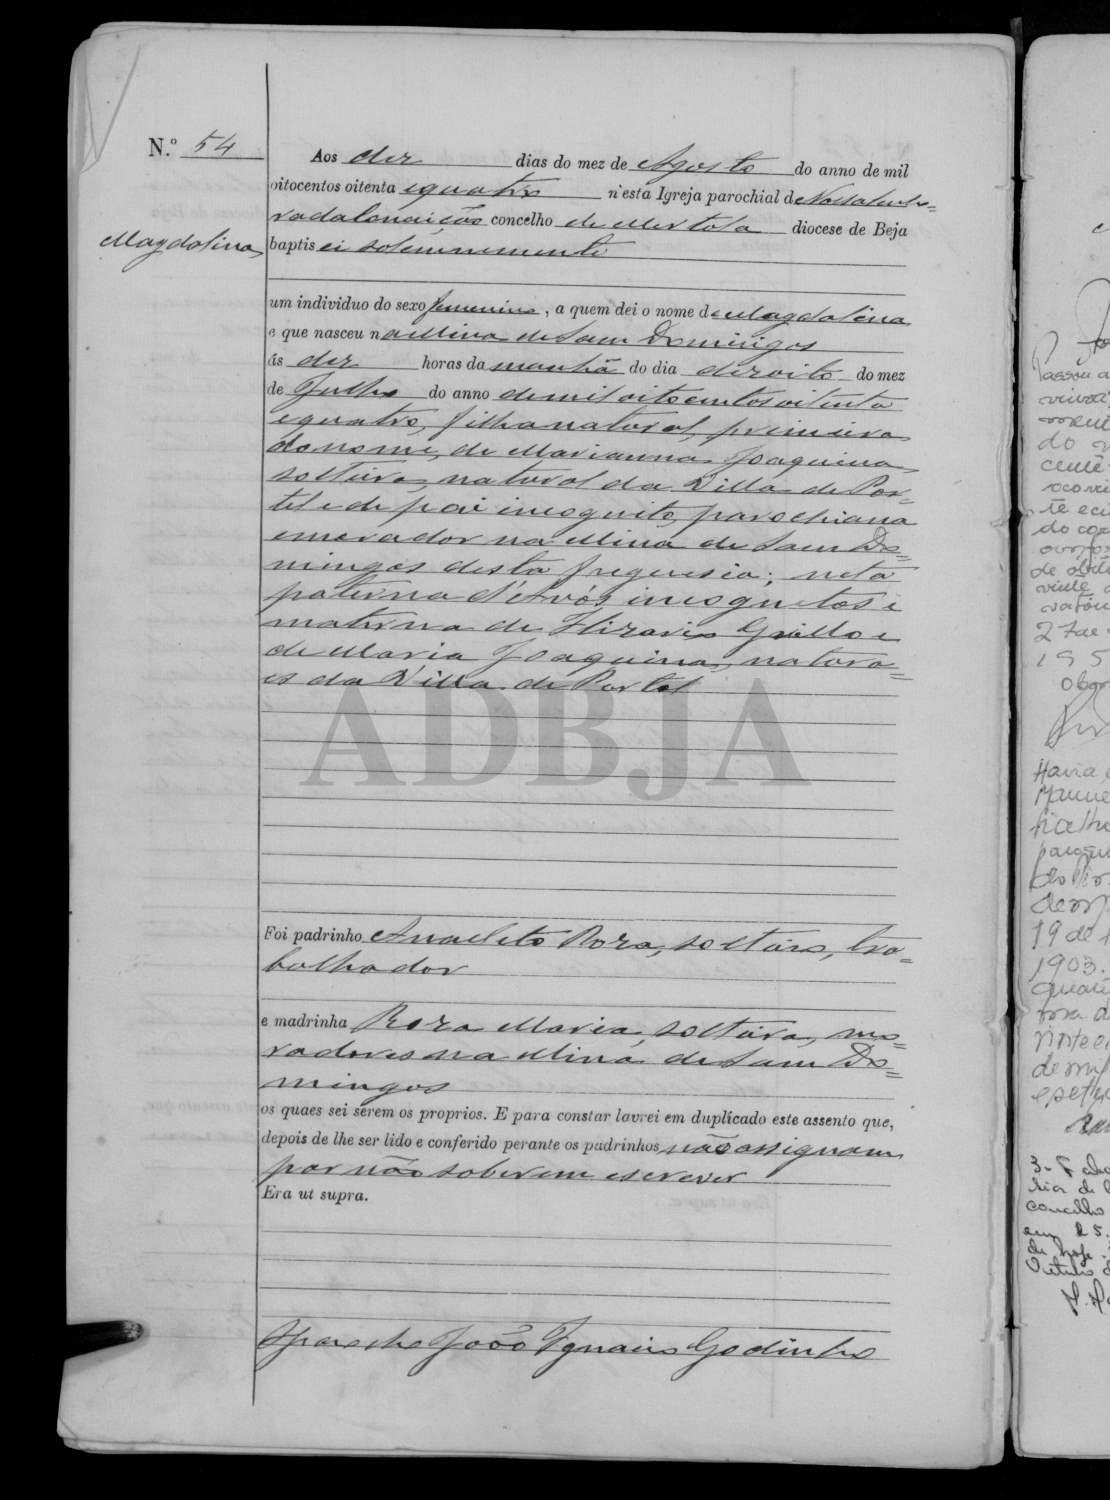 N.º 54
Aos dez dias do mez de Agosto do anno de mil
oitocentos oitenta equatro n'esta Igreja parochial de Nossa Senho=
radaConceição concelho de Mertola diocese de Beja
Magdalina
baptisei solemnemente
um individuo do sexo femenino, a quem dei o nome de Magdalina
e que nasceu na Mina de Sam Domingos
ás dez horas da manhã do dia dezoito do mez
de Julho do anno demil oitocentos oitenta
equatro, filha natural, primeira
do nome, de Marianna Joaquina,
solteira, natural da Villa de Por=
tel e de pai incognito, parochiana
emorador na Mina de Sam Do=
mingos desta freguesia; neta
paterna d'Avós incognitos e
materna de Grillo e
de Maria Joaquina, natura=
es da Villa de Portel
ADBJA
Foi padrinho Anacleto Roza, solteiro, tra=
balhador
e madrinha Roza Maria, solteira, mo=
radores na Mina de Sam Do=
mingos
os quaes sei serem os proprios. E para constar lavrei em duplicado este assento que,
depois de lhe ser lido e conferido perante os padrinhos não assignam
por não saberem escrever
Era ut supra.
O parocho João Ignacio Godinho